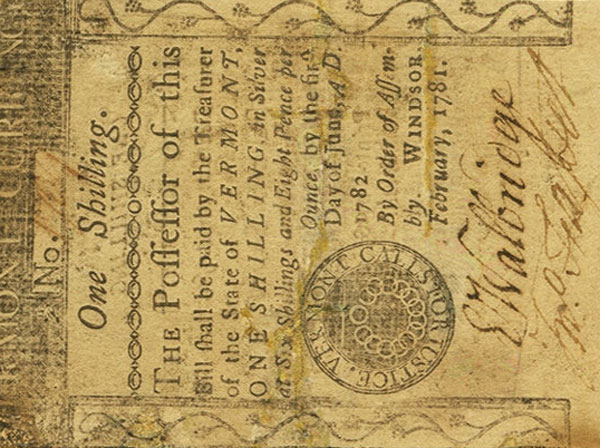 VERMONT CURRENCY.
No.
One Shilling.
THE Poſſeſſor of this
Bill ſhall be paid by the Treaſurer
of the State of VERMONT,
ONE SHILLING, in Silver
at Six Shillings and Eight Pence per
Ounce, by the firſt
Day of June, A.D.
1782.
By Order of Aſſem-
bly. WINDSOR,
February, 1781.
VERMONT CALLS FOR JUSTICE.
E Walbridge